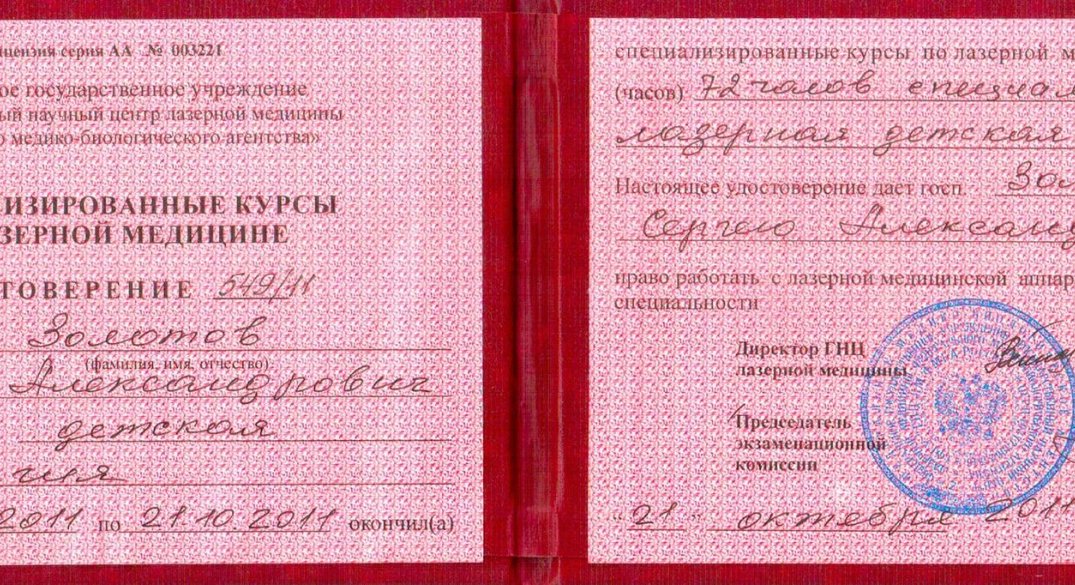 ицензия серия АА № 003221
ое государственное учреждение
ый научный центр лазерной медицины
о медико-биологического агентства»
ИЗИРОВАННЫЕ КУРСЫ
ЗЕРНОЙ МЕДИЦИНЕ
ТОВЕРЕНИЕ 549/11
Золотов
(фамилия, имя, отчество)
Александрович
детская
гия
2011 по 21.10.2011 окончил(а)
специализированные курсы по лазерной м
(часов) 72 часов специал
лазерная детская
Настоящее удостоверение дает госп. Зол
Сергею Александ
право работать с лазерной медицинской аппар
специальности
Директор ГНЦ
лазерной медицины
Председатель
экзаменационной
комиссии
"21 " октября 2011